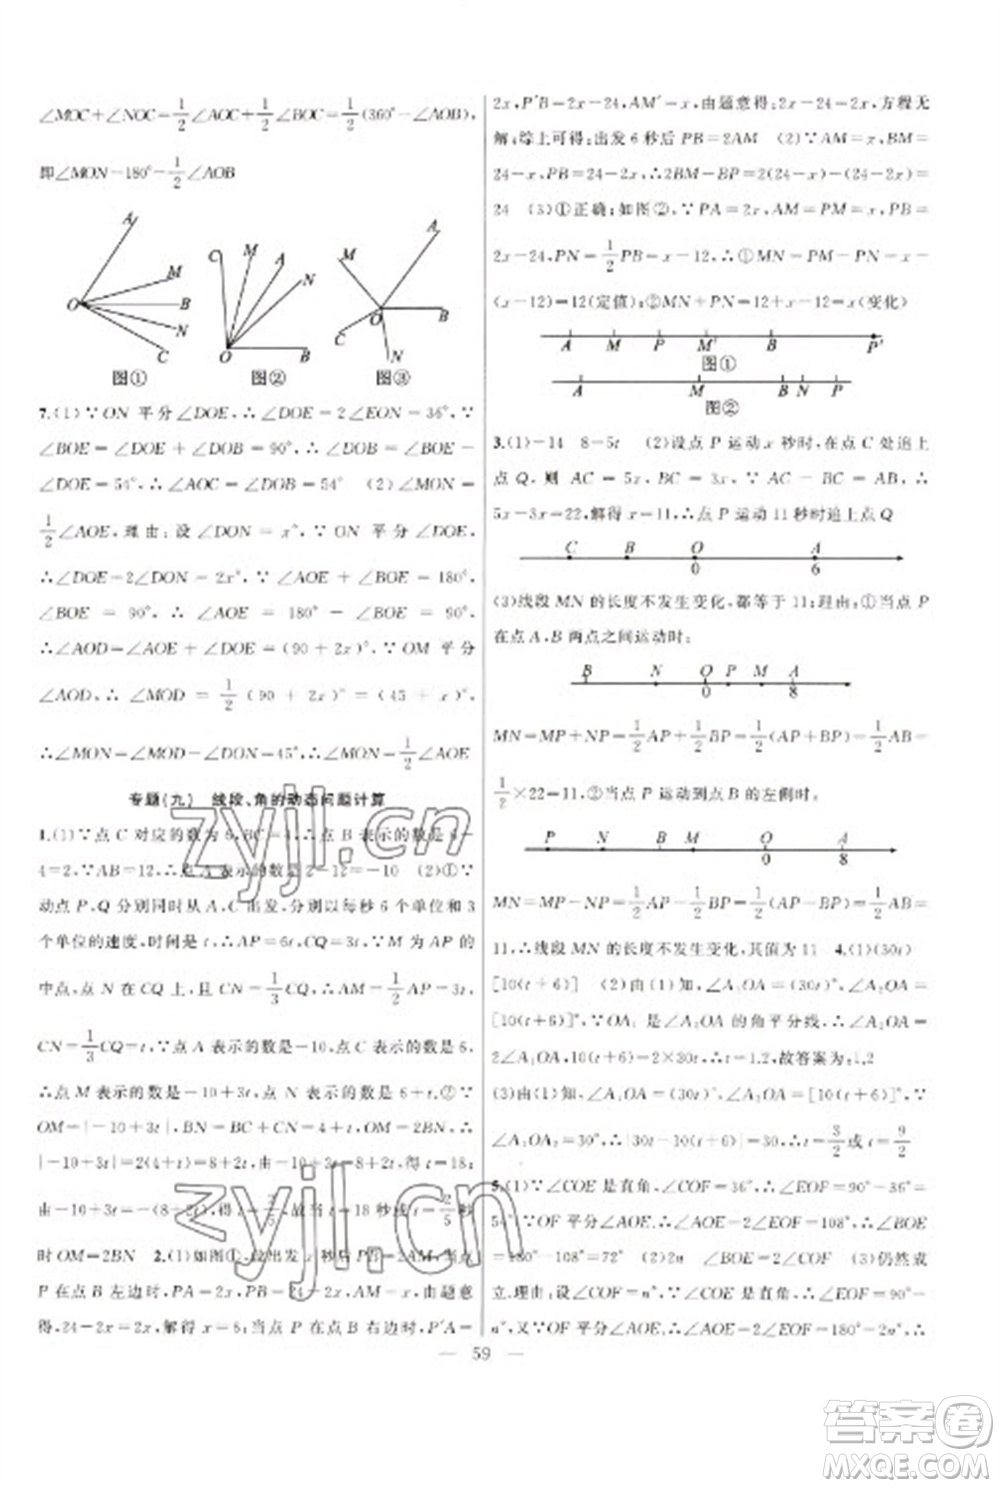 ∠MOC+∠NOC=1/2∠AOC+1/2∠BOC=1/2(360°-∠AOB),
即∠MON=180°-1/2∠AOB
A
M
O
B
N
C
图①
C
M
A
N
O
B
图②
M
A
O
B
C
N
图③
7.(1)∵ON 平分∠DOE,∴∠DOE=2∠EON=36°,∵
∠BOE=∠DOE+∠DOB=90°,∴∠DOB=∠BOE-
∠DOE=54°,∴∠AOC=∠DOB=54° (2)∠MON=
1/2∠AOE,理由:设∠DON=x°,∵ON 平分∠DOE,
∴∠DOE=2∠DON=2x°,∵∠AOE+∠BOE=180°,
∠BOE=90°,∴∠AOE=180°-∠BOE=90°,
∴∠AOD=∠AOE+∠DOE=(90+2x)°,∵OM 平分
∠AOD,∴∠MOD=1/2(90+2x)°=(45+x)°,
∴∠MON=∠MOD-∠DON=45°,∴∠MON=1/2∠AOE
专题(九) 线段、角的动态问题计算
1.(1)∵点C对应的数为6,BC=4,∴点B表示的数是6-
4=2,∵AB=12,∴点A表示的数是2-12=-10 (2)①∵
动点P、Q分别同时从A、C出发,分别以每秒6个单位和3
个单位的速度,时间是t,∴AP=6t,CQ=3t,∵M为AP的
中点,点N在CQ上,且CN=1/3CQ,∴AM=1/2AP=3t,
CN=1/3CQ=t,∵点A表示的数是-10,点C表示的数是6,
∴点M表示的数是-10+3t,点N表示的数是6+t,②∵
OM=|-10+3t|,BN=BC+CN=4+t,OM=2BN,∴
|-10+3t|=2(4+t)=8+2t,由-10+3t=8+2t,得t=18;
由-10+3t=-(8+2t),得t=2/5,故当t=18秒或t=2/5秒
时OM=2BN 2.(1)如图①,设出发x秒后PB=2AM,当点
P在点B左边时,PA=2x,PB=24-2x,AM=x,由题意
得,24-2x=2x,解得x=6;当点P在点B右边时,P'A=
2x,P'B=2x-24,AM'=x,由题意得:2x-24=2x,方程无
解;综上可得:出发6秒后PB=2AM (2)∵AM=x,BM=
24-x,PB=24-2x,∴2BM-BP=2(24-x)-(24-2x)=
24 (3)①正确;如图②,∵PA=2x,AM=PM=x,PB=
2x-24,PN=1/2PB=x-12,∴①MN=PM-PN=x-
(x-12)=12(定值);②MN+PN=12+x-12=x(变化)
A M P M' B P'
图①
A M B N P
图②
3.(1)-14 8-5t (2)设点P运动x秒时,在点C处追上
点Q,则AC=5x,BC=3x,∵AC-BC=AB,∴
5x-3x=22,解得x=11,∴点P运动11秒时追上点Q
C B O A
0 6
(3)线段MN的长度不发生变化,都等于11;理由:①当点P
在点A、B两点之间运动时:
B N O P M A
0 8
MN=MP+NP=1/2AP+1/2BP=1/2(AP+BP)=1/2AB=
1/2×22=11,②当点P运动到点B的左侧时:
P N B M O A
0 8
MN=MP-NP=1/2AP-1/2BP=1/2(AP-BP)=1/2AB=
11,∴线段MN的长度不发生变化,其值为11 4.(1)(30t)
[10(t+6)] (2)由(1)知,∠A₁OA=(30t)°,∠A₂OA=
[10(t+6)]°,∵OA₁是∠A₂OA的角平分线,∴∠A₂OA=
2∠A₁OA,∴10(t+6)=2×30t,∴t=1.2,故答案为:1.2
(3)由(1)知,∠A₁OA=(30t)°,∠A₂OA=[10(t+6)]°,∵
∠A₁OA₂=30°,∴|30t-10(t+6)|=30,∴t=3/2或t=9/2
5.(1)∵∠COE是直角,∠COF=36°,∴∠EOF=90°-36°=
54°,∵OF平分∠AOE,∴∠AOE=2∠EOF=108°,∴∠BOE
=180°-108°=72° (2)2n ∠BOE=2∠COF (3)仍然成
立.理由:设∠COF=n°,∵∠COE是直角,∴∠EOF=90°-
n°,又∵OF平分∠AOE,∴∠AOE=2∠EOF=180°-2n°
59
zyjl.cn
zyjl.cn
答案圈
MXQE.COM